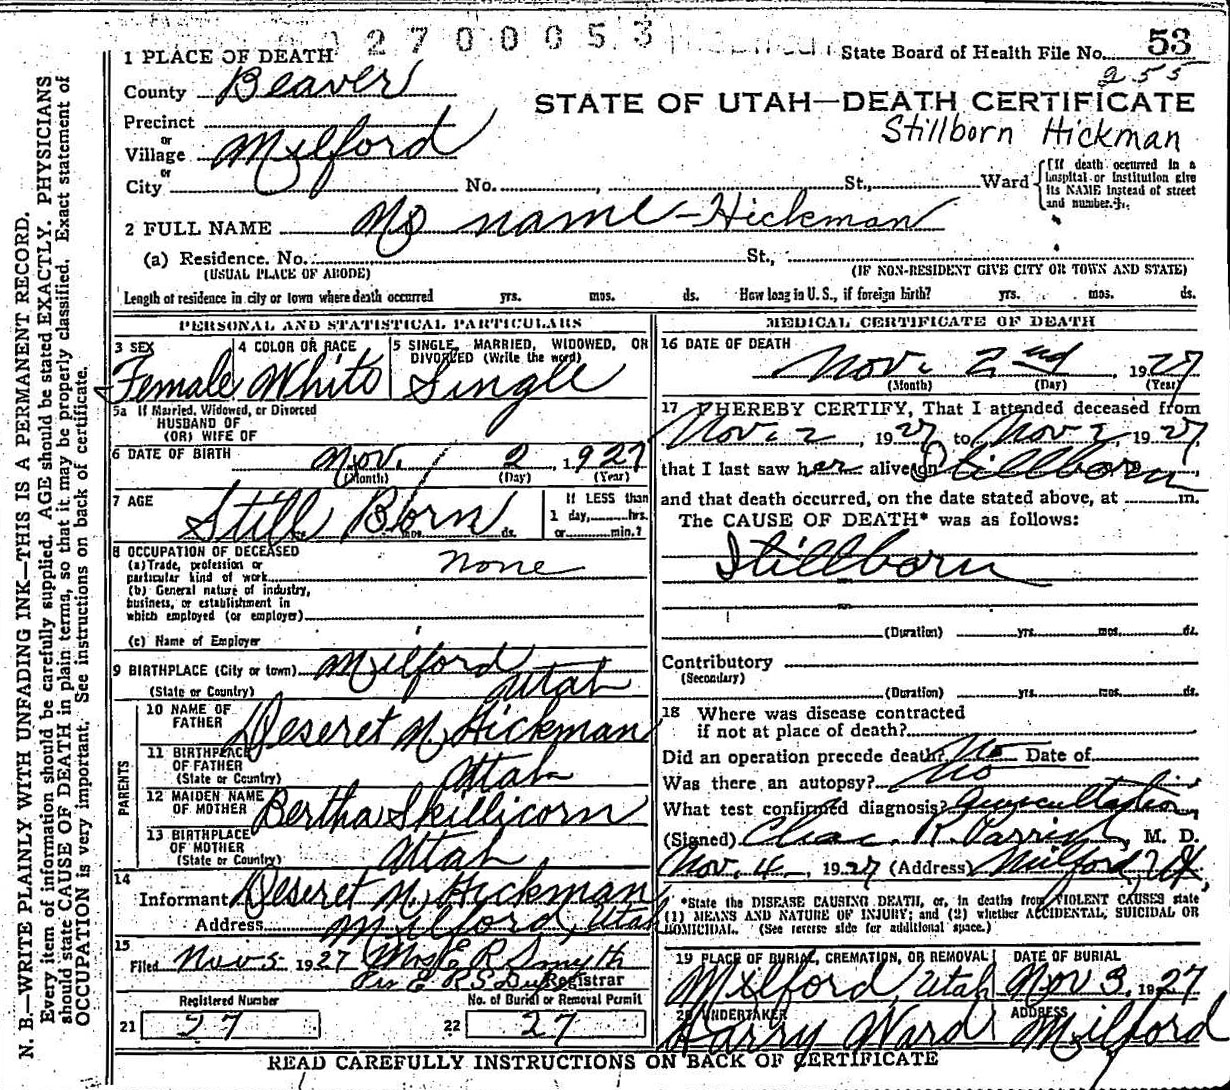 2 7 0 0 0 5 3
1 PLACE OF DEATH
State Board of Health File No. 53
255
County Beaver
STATE OF UTAH—DEATH CERTIFICATE
Stillborn Hickman
Precinct
or
Village Milford
or
City No. , St., Ward
(If death occurred in a hospital or institution give its NAME instead of street and number.)
2 FULL NAME No name - Hickman
(a) Residence. No. St.,
(USUAL PLACE OF ABODE) (IF NON-RESIDENT GIVE CITY OR TOWN AND STATE)
Length of residence in city or town where death occurred yrs. mos. ds. How long in U. S., if foreign birth? yrs. mos. ds.
PERSONAL AND STATISTICAL PARTICULARS
3 SEX 4 COLOR OR RACE 5 SINGLE, MARRIED, WIDOWED, OR
DIVORCED (Write the word)
Female White Single
5a If Married, Widowed, or Divorced
HUSBAND OF
(OR) WIFE OF
6 DATE OF BIRTH Nov. 2, 1927
(Month) (Day) (Year)
7 AGE Still Born mos. ds.
If LESS than
1 day, hrs.
or min.?
8 OCCUPATION OF DECEASED
(a) Trade, profession or
particular kind of work none
(b) General nature of industry,
business, or establishment in
which employed (or employer)
(c) Name of Employer
9 BIRTHPLACE (City or town) Milford
(State or Country) Utah
PARENTS
10 NAME OF
FATHER Deseret N. Hickman
11 BIRTHPLACE
OF FATHER
(State or Country) Utah
12 MAIDEN NAME
OF MOTHER Bertha Skillicorn
13 BIRTHPLACE
OF MOTHER
(State or Country) Utah
14
Informant Deseret N. Hickman
Address Milford, Utah
15
Filed Nov 5 1927 Mrs E R Smyth
Registrar
Registered Number No. of Burial or Removal Permit
21 27 22 27
MEDICAL CERTIFICATE OF DEATH
16 DATE OF DEATH
Nov. 2nd, 1927
(Month) (Day) (Year)
17 I HEREBY CERTIFY, That I attended deceased from
Nov. 2, 1927 to Nov 2, 1927
that I last saw her alive on Stillborn
and that death occurred, on the date stated above, at m.
The CAUSE OF DEATH* was as follows:
Stillborn
(Duration) yrs. mos. ds.
Contributory
(Secondary)
(Duration) yrs. mos. ds.
18 Where was disease contracted
if not at place of death?
Did an operation precede death? No Date of
Was there an autopsy? No
What test confirmed diagnosis? Auscultation
(Signed) Chas. R. Parrish, M. D.
Nov. 4, 1927 (Address) Milford, Ut.
*State the DISEASE CAUSING DEATH, or, in deaths from VIOLENT CAUSES state
(1) MEANS AND NATURE OF INJURY; and (2) whether ACCIDENTAL, SUICIDAL OR
HOMICIDAL. (See reverse side for additional space.)
19 PLACE OF BURIAL, CREMATION, OR REMOVAL DATE OF BURIAL
Milford Utah Nov 3, 1927
20 UNDERTAKER ADDRESS
Harry Ward Milford
READ CAREFULLY INSTRUCTIONS ON BACK OF CERTIFICATE
N. B.—WRITE PLAINLY WITH UNFADING INK—THIS IS A PERMANENT RECORD.
Every item of information should be carefully supplied. AGE should be stated EXACTLY. PHYSICIANS
should state CAUSE OF DEATH in plain terms, so that it may be properly classified. Exact statement of
OCCUPATION is very important. See instructions on back of certificate.